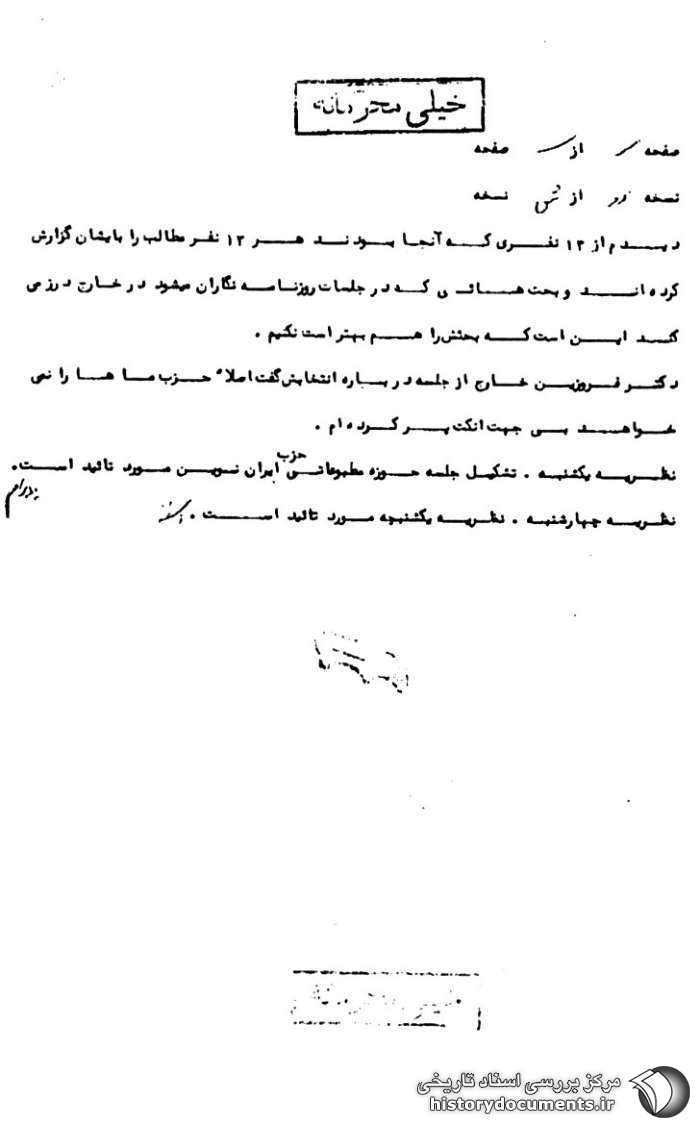 خیلی محرمانه
صفحه از صفحه
نسخه از نسخه
دیدم از ۱۳ نفری که آنجا بودند هر ۱۳ نفر مطالب را بایشان گزارش
کرده اند و بحث هائی که در جلسات روزنامه نگاران میشود در خارج درز می
کند این است که بحثش را هم بهتر است نکنیم .
دکتر فروزین خارج از جلسه در باره انتخابش گفت اصلا" حزب ما ها را نمی
خواهند بی جهت انکت پر کرده ام .
نظریه یکشنبه . تشکیل جلسه حوزه مطبوعاتی حزب ایران نوین مورد تائید است.
نظریه چهارشنبه . نظریه یکشنبچه مورد تائید است .
مرکز بررسی اسناد تاریخی
historydocuments.ir